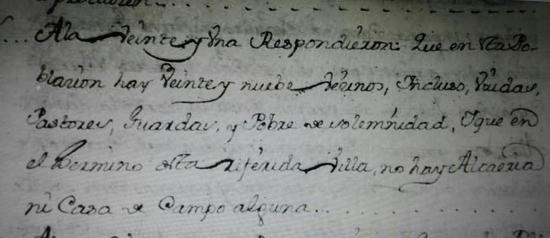 A la Veinte y Una Respondieron: Que en Sta Po-
blazion hay Veinte y nuebe Vezinos, Incluso, Viudas,
Pastores, Guardas, y Pobre de solemnidad, Y que en
el Termino desta referida Villa, no hay Alcaeria
ni Casa de Campo alguna...